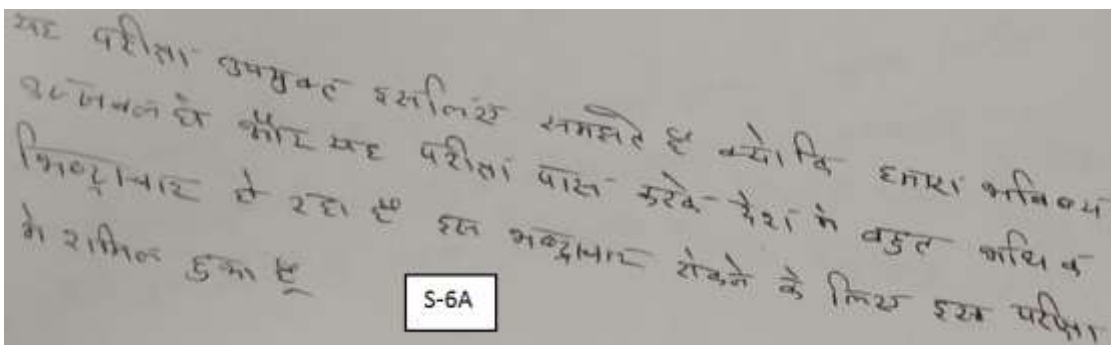 यह परीक्षा उपयुक्त इसलिए समझते है क्योकि हमारा भविष्य
उज्जवल हो और यह परीक्षा पास करके देश मे बहुत अधिक
भिष्ट्राचार हो रहा है इस भष्ट्राचार रोकने के लिए इस परीक्षा
मे शामिल हुआ हूँ
S-6A